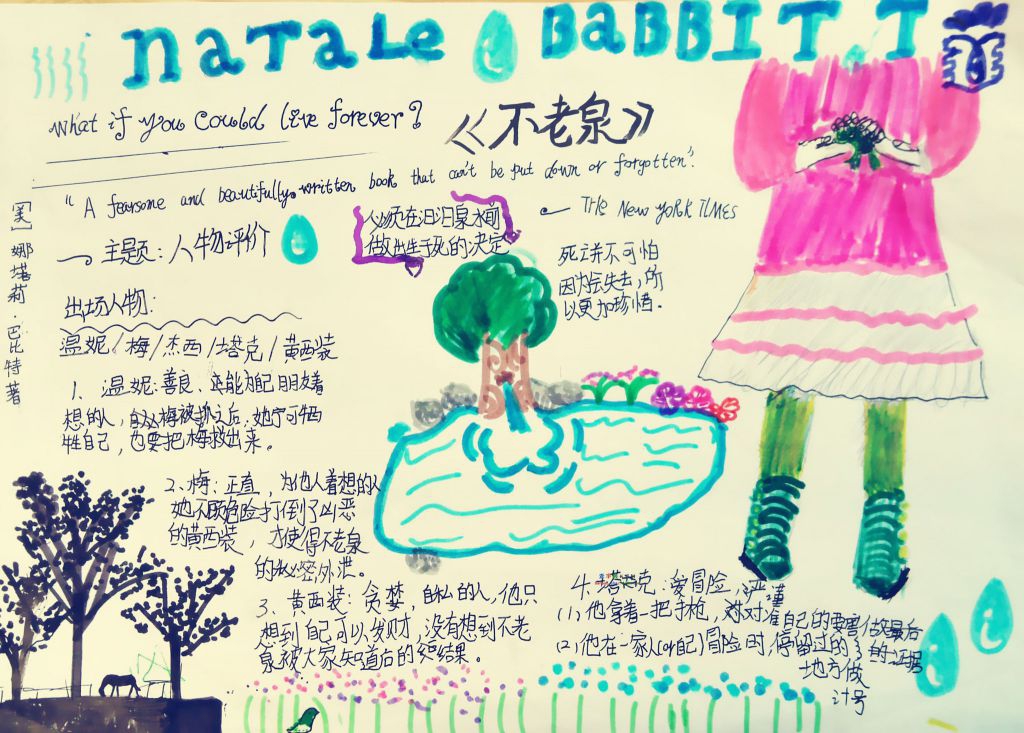 NATALE BABBITT
What if you could live forever?
《不老泉》
"A fearsome and beautifully written book that can't be put down or forgotten".
— THE NEW YORK TIMES
[美]娜塔莉·巴比特著
主题:人物评价
必须在汩汩泉水前
做出生于死的决定
死亡并不可怕
因为会失去,所
以更加珍惜。
出场人物:
温妮/梅/杰西/塔克/黄西装
1、温妮:善良、还能为自己朋友着
想的人,自从梅被抓之后,她宁可牺
牲自己,也要把梅救出来。
2、梅:正直,为他人着想的人
她不顾危险打倒了凶恶
的黄西装,才使得不老泉
的秘密外泄。
3、黄西装:贪婪,自私的人,他只
想到自己可以发财,没有想到不老
泉被大家知道后的结果。
4、塔克:爱冒险,严谨
(1)、他拿着一把手枪,对准自己的要害做最后
的证据
(2)、他在一家人(or自己)冒险时,停留过的
地方做
计号